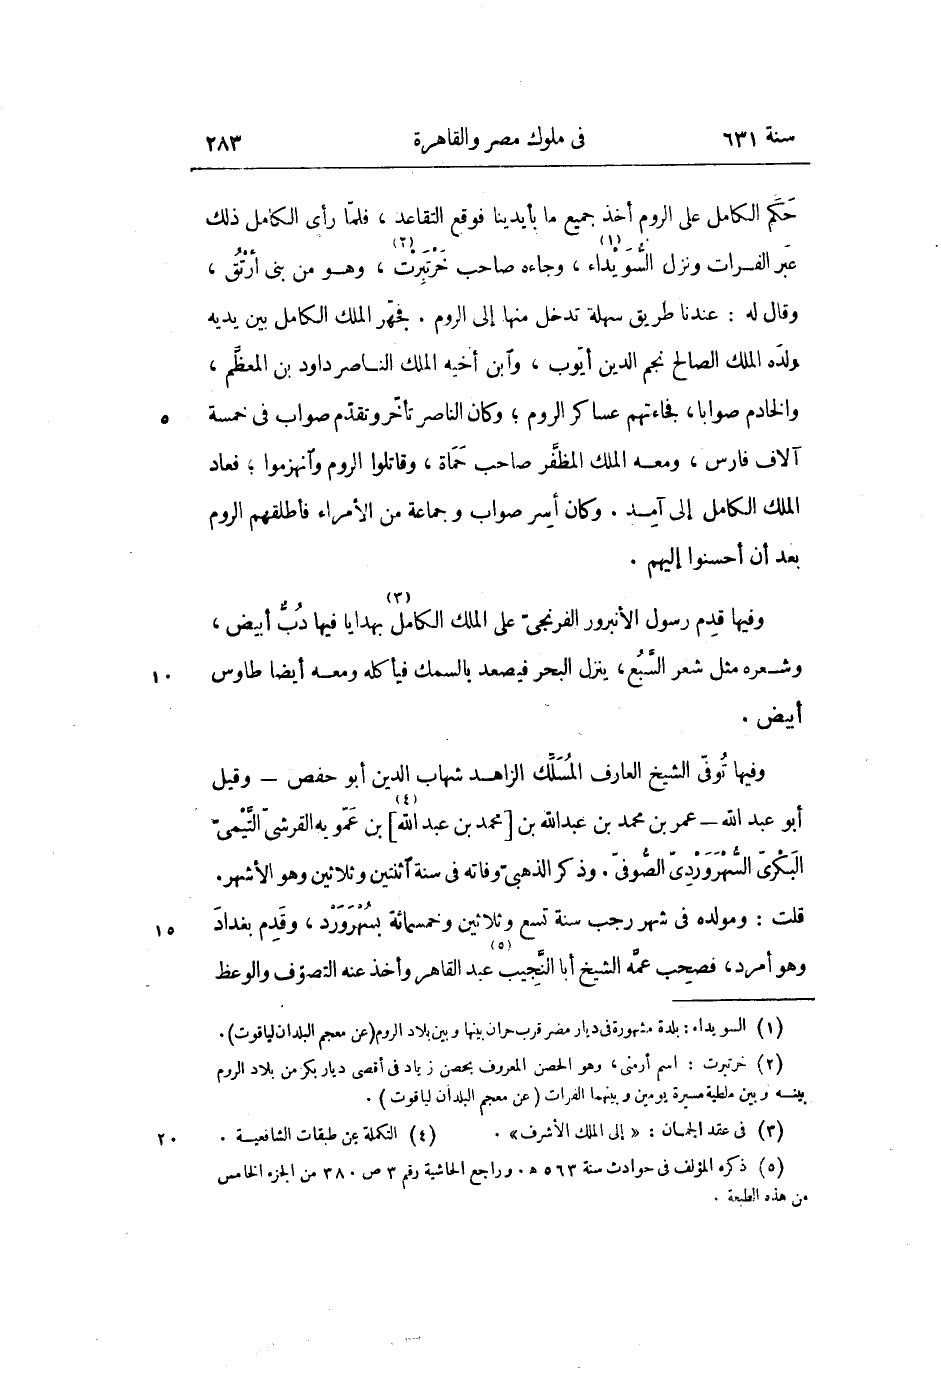 سنة ٦٣١ فى ملوك مصر والقاهرة ٢٨٣
حَكَم الكامل على الروم أخذ جميع ما بأيدينا فوقع التقاعد ، فلمّا رأى الكامل ذلك
عبَر الفـرات ونزل السُّوَيْداء (١) ، وجاءه صاحب خَرْتَبِرْت (٢) ، وهـو من بنى أُرْتُق ،
وقال له : عندنا طريق سهلة تدخل منها إلى الروم . فجهّز الملك الكامل بين يديه
ولدَه الملك الصالح نجم الدين أيّوب ، وآبن أخيه الملك النـاصر داود بن المعظَّم ،
والخادم صوابا، فجاءتهم عساكر الروم ؛ وكان الناصر تأخّر وتقدّم صواب فى خمسة ٥
آلاف فارس ، ومعـه الملك المظفَّر صاحب حَمَاة ، وقاتلوا الروم وآنهزموا ؛ فعاد
الملك الكامل إلى آمِـد . وكان أُسِر صواب و جماعة من الأمراء فأطلقهم الروم
بعد أن أحسنوا إليهم .
وفيها قدِم رسول الأنبرور الفرنجىّ على الملك الكامل (٣) بهدايا فيها دُبٌّ أبيض ،
وشـعره مثل شعر السَّبُع، ينزل البحر فيصعد بالسمك فيأكله ومعـه أيضا طاوس ١٠
أبيض .
وفيها تُوفّى الشيخ العارف المُسَلَّك الزاهـد شهاب الدين أبو حفص – وقيل
أبو عبد الله – عمر بن محمد بن عبدالله بن [محمد بن عبد الله] (٤) بن عَمّويه القرشىّ التَّيْمىّ
البَكْرىّ السُّهْرَوَرْدِىّ الصُّوفىّ . وذكر الذهبىّ وفاته فى سنة آثنتين وثلاثين وهو الأشهر.
قلت : ومولده فى شهر رجب سنة تسع وثلاثين وخمسمائة بسُهْرَوَرْد ، وقَدِم بغدادَ ١٥
وهو أمرد، فصحِب عمَّه الشيخ أبا النَّجِيب (٥) عبد القاهر وأخذ عنه التصوّف والوعظ
(١) السويداء : بلدة مشهورة فى ديار مضر قرب حران بينها وبين بلاد الروم (عن معجم البلدان لياقوت) .
(٢) خرتبرت : اسم أرمنى، وهو الحصن المعروف بحصن زياد فى أقصى ديار بكر من بلاد الروم
بينـه وبين ملطية مسيرة يومين وبينهما الفرات (عن معجم البلدان لياقوت) .
(٣) فى عقد الجمان : « إلى الملك الأشرف» . (٤) التكملة عن طبقات الشافعيـة . ٢٠
(٥) ذكره المؤلف فى حوادث سنة ٥٦٣ ﻫ . وراجع الحاشية رقم ٣ ص ٣٨٠ من الجزء الخامس
من هذه الطبعة .